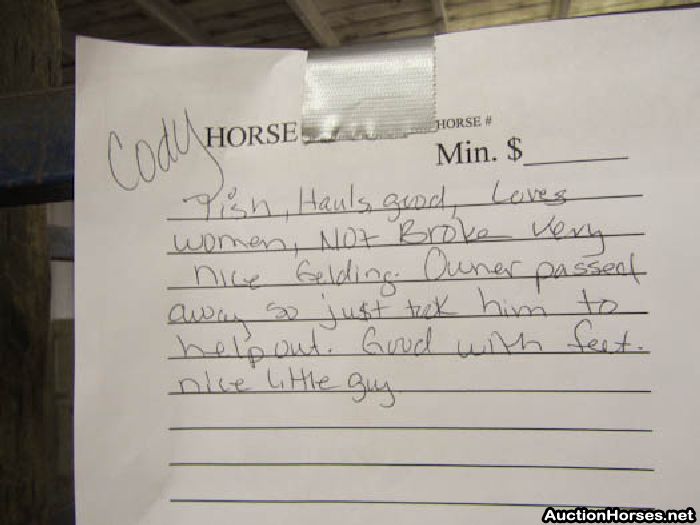 Cody HORSE
HORSE #
Min. $
ish, Hauls good, Loves
women, NOT Broke Very
nice Gelding. Owner passed
away so just took him to
help out. Good with feet.
nice little guy
AuctionHorses.net